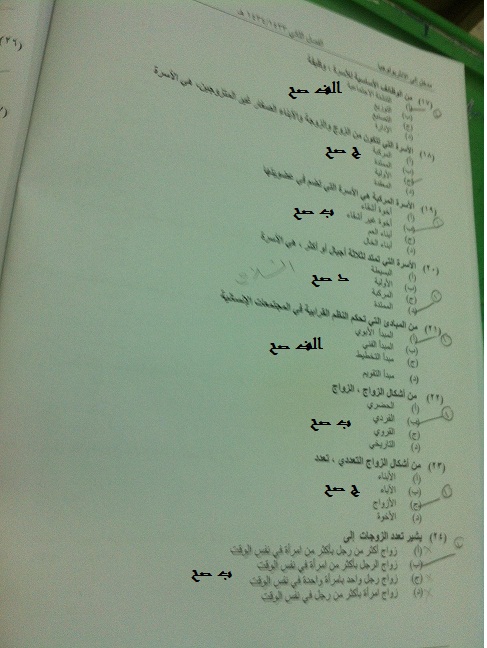 مدخل إلى الأنثروبولوجيا
الفصل الثاني ١٤٣٣/١٤٣٤ هـ
(١٧) من الوظائف الأساسية للأسرة ، وظيفة
(أ) التنشئة الاجتماعية
(ب) التوزيع
(ج) التصنيع
(د) الإدارة
الف صح
(١٨) الأسرة التي تتكون من الزوج والزوجة والأبناء الصغار غير المتزوجين، هي الأسرة
(أ) المركبة
(ب) الممتدة
(ج) الأولية
(د) المعقدة
ج صح
(١٩) الأسرة المركبة هي الأسرة التي تضم في عضويتها
(أ) أخوة أشقاء
(ب) أخوة غير أشقاء
(ج) أبناء العم
(د) أبناء الخال
ب صح
(٢٠) الأسرة التي تمتد لثلاثة أجيال أو أكثر ، هي الأسرة
(أ) البسيطة
(ب) الأولية
(ج) المركبة
(د) الممتدة
د صح
(٢١) من المبادئ التي تحكم النظم القرابية في المجتمعات الإنسانية
(أ) المبدأ الأبوي
(ب) المبدأ الفني
(ج) مبدأ التخطيط
(د) مبدأ التقويم
الف صح
(٢٢) من أشكال الزواج ، الزواج
(أ) الحضري
(ب) الفردي
(ج) القروي
(د) التاريخي
ب صح
(٢٣) من أشكال الزواج التعددي ، تعدد
(أ) الأبناء
(ب) الآباء
(ج) الأزواج
(د) الأخوة
ج صح
(٢٤) يشير تعدد الزوجات إلى
(أ) زواج أكثر من رجل بأكثر من امرأة في نفس الوقت
(ب) زواج الرجل بأكثر من امرأة في نفس الوقت
(ج) زواج رجل واحد بامرأة واحدة في نفس الوقت
(د) زواج امرأة بأكثر من رجل في نفس الوقت
ب صح
(٢٦)